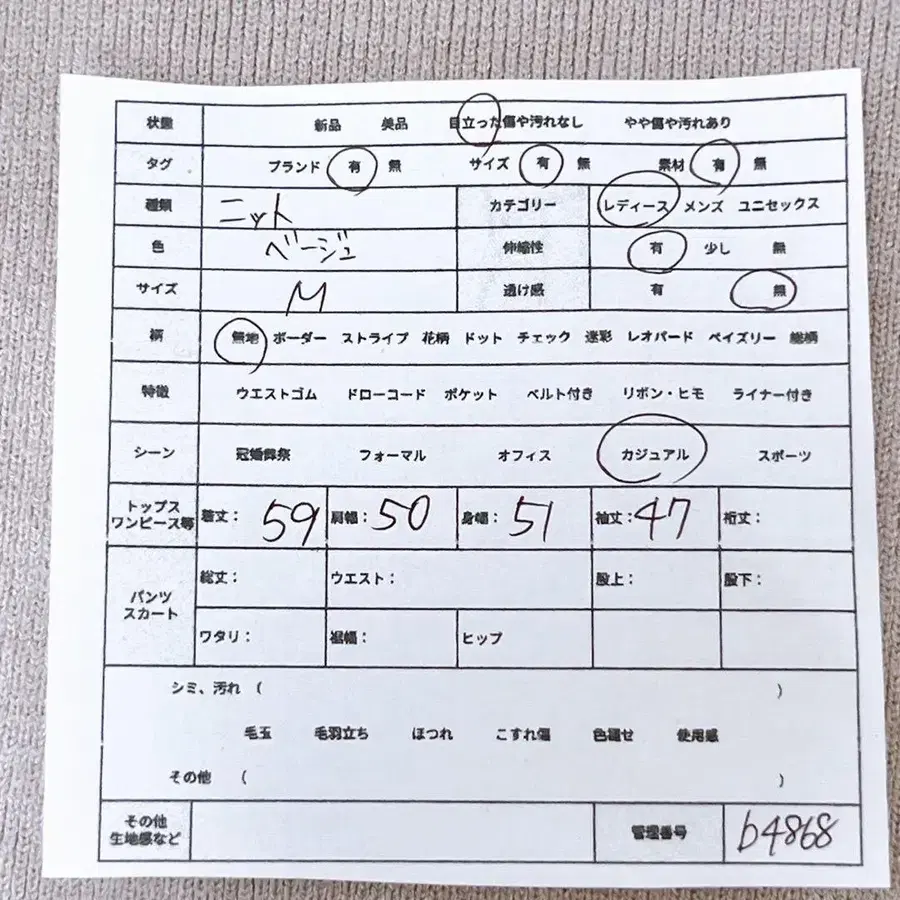 状態 新品 美品 目立った傷や汚れなし やや傷や汚れあり
タグ ブランド 有 無 サイズ 有 無 素材 有 無
種類 ニット カテゴリー レディース メンズ ユニセックス
色 ベージュ 伸縮性 有 少し 無
サイズ M 透け感 有 無
柄 無地 ボーダー ストライプ 花柄 ドット チェック 迷彩 レオパード ペイズリー 総柄
特徴 ウエストゴム ドローコード ポケット ベルト付き リボン・ヒモ ライナー付き
シーン 冠婚葬祭 フォーマル オフィス カジュアル スポーツ
トップス
ワンピース等 着丈: 59 肩幅: 50 身幅: 51 袖丈: 47 裄丈:
パンツ
スカート
総丈: ウエスト: 股上: 股下:
ワタリ: 裾幅: ヒップ
シミ、汚れ ( )
毛玉 毛羽立ち ほつれ こすれ傷 色褪せ 使用感
その他 ( )
その他
生地感など 管理番号 b4868